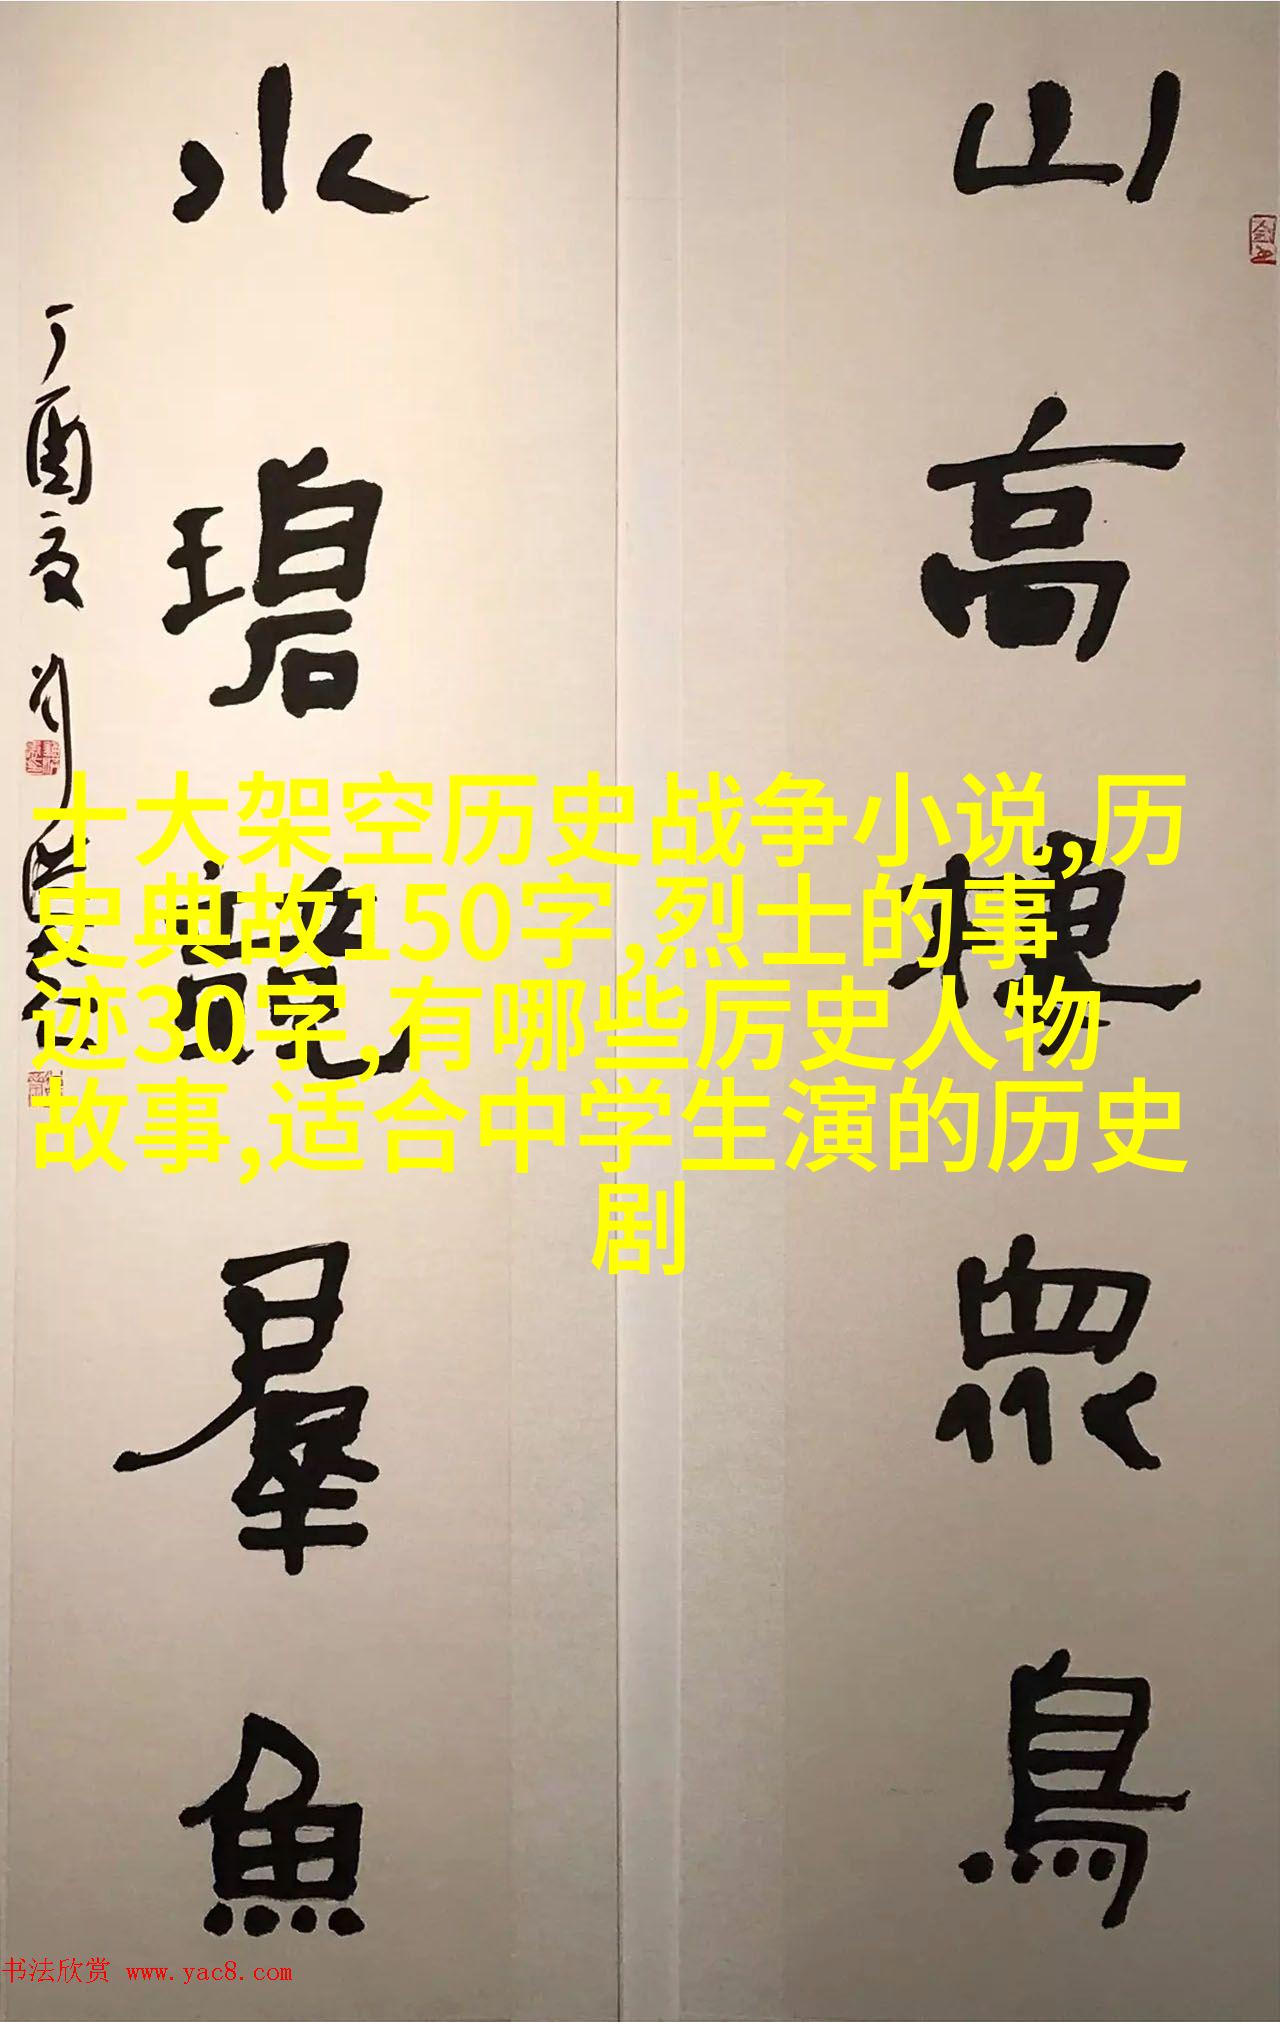 山高樓眾鳥
水碧謐羣魚
丁酉夏
十大架空历史战争小说,历
史典故150字,烈士的事
迹30字,有哪些厉史人物
故事,适合中学生演的历史
剧
书法欣赏 www.yac8.com